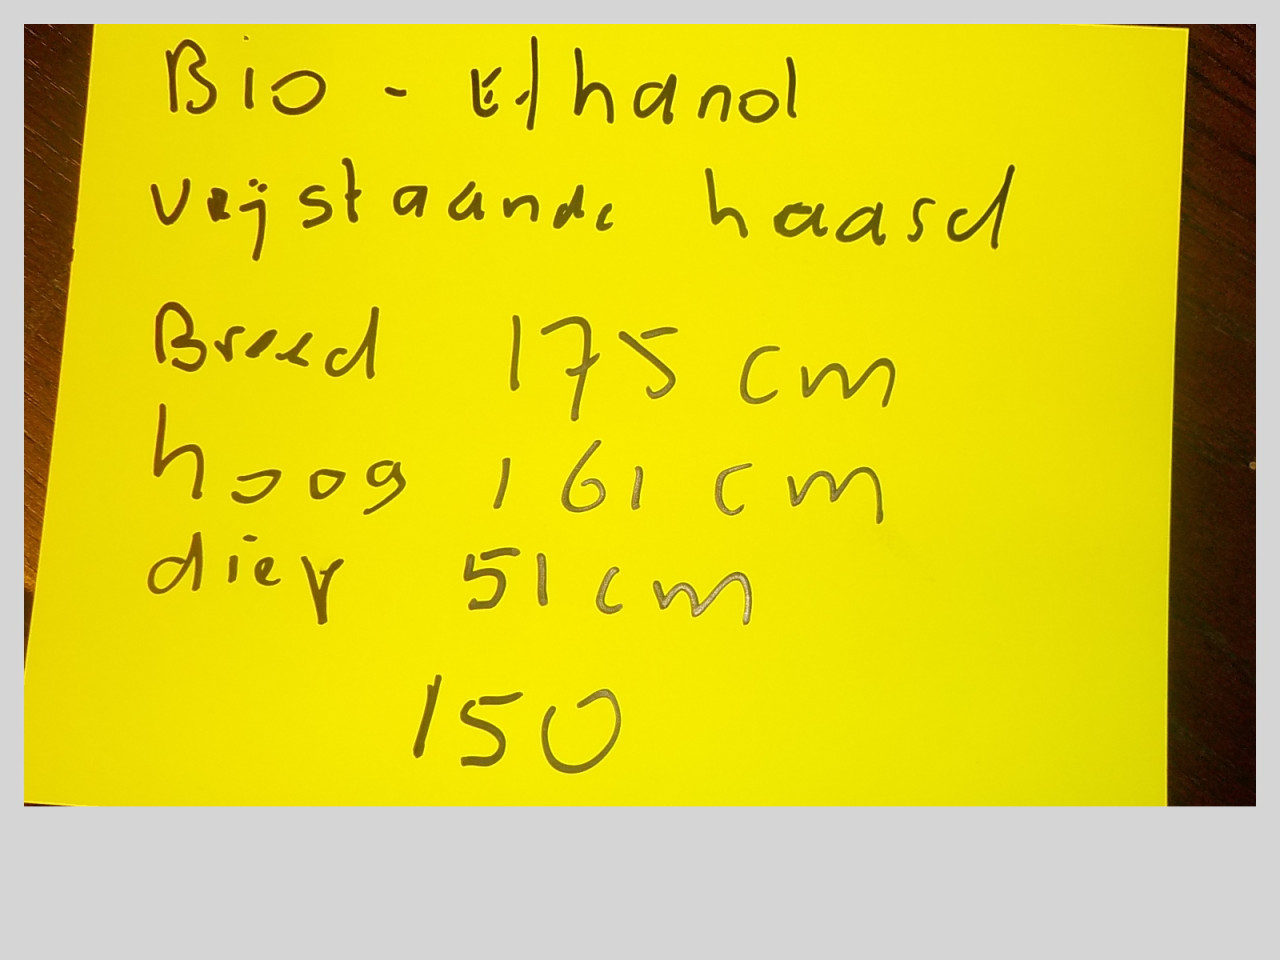 Bio - Ethanol
vrijstaande haard
Breed 175 cm
hoog 161 cm
diep 51 cm
150